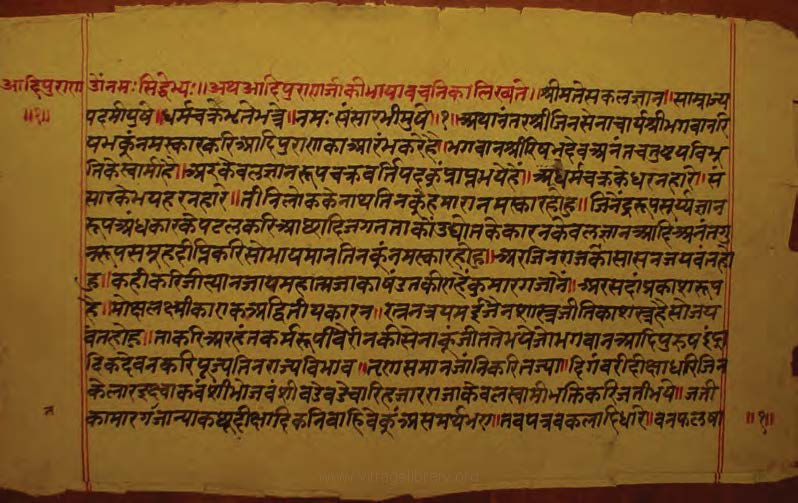 आदिपुराण ॐनमःसिद्धेभ्यः॥अथआदिपुराणजीकीभाषावचनिकालिख्यते॥श्रीमतेसकलज्ञान॥साम्राज्य
॥१॥ पदमीयुषे॥धर्मचक्रभृतेभर्त्रे॥नमःसंसारभीमुषे॥१॥अथानंतरश्रीजिनसेनाचार्यश्रीभगवानरि
षभकूंनमस्कारकरिआदिपुराणकाआरंभकरेहै॥भगवानश्रीरिषभदेवअनंतचतुष्टयविभू
तिकेस्वामीहै॥अरकेवलज्ञानरूपचक्रवर्तिपदकूंप्राप्तभयेहैं॥अरधर्मचक्रकेधरनहारे॥सं
सारकेभयहरनहारे॥तीनिलोककेनाथतिनकूंहमारानमस्कारहोहु॥जिनेंद्ररूपसूर्य्यज्ञान
रूपअंधकारकेपटलकरिआछादिजगतताकोउद्योतकेकारनकेवलज्ञानआदिअनंतगु
नरूपसमूहदीप्तिकरिसोभायमानतिनकूंनमस्कारहोहु॥अरजिनराजकासासनजयवंतहो
हु॥ ॥अरसदाप्रकाशरूप
है॥मोक्षलक्ष्मीकाराकअद्वितीयकारन॥रत्नत्रयमईजैनशास्त्र सोजय
वंतहोहु॥ताकरिअरहंतकर्मरूपीवैरीनकीसेनाकूंजीततेभयेजोभगवानआदिपुरुषइंद्रा
दिकदेवनकरिपूज्यतिनराज्यविभाव॥तृणसमानजांनिकरितज्या॥दिगंबरीदीक्षाधरिजिन
केलारइक्ष्वाकवंशीभोजवंशीवडेवडेचारिहजारराजाकेवलस्वामीभक्तिकरिजतीभये॥जती
कामारगजान्या दिकनिवाहिवेकूंअसमर्थभए॥तवपत्रवकलादिधारे॥वनफलषा ॥१॥